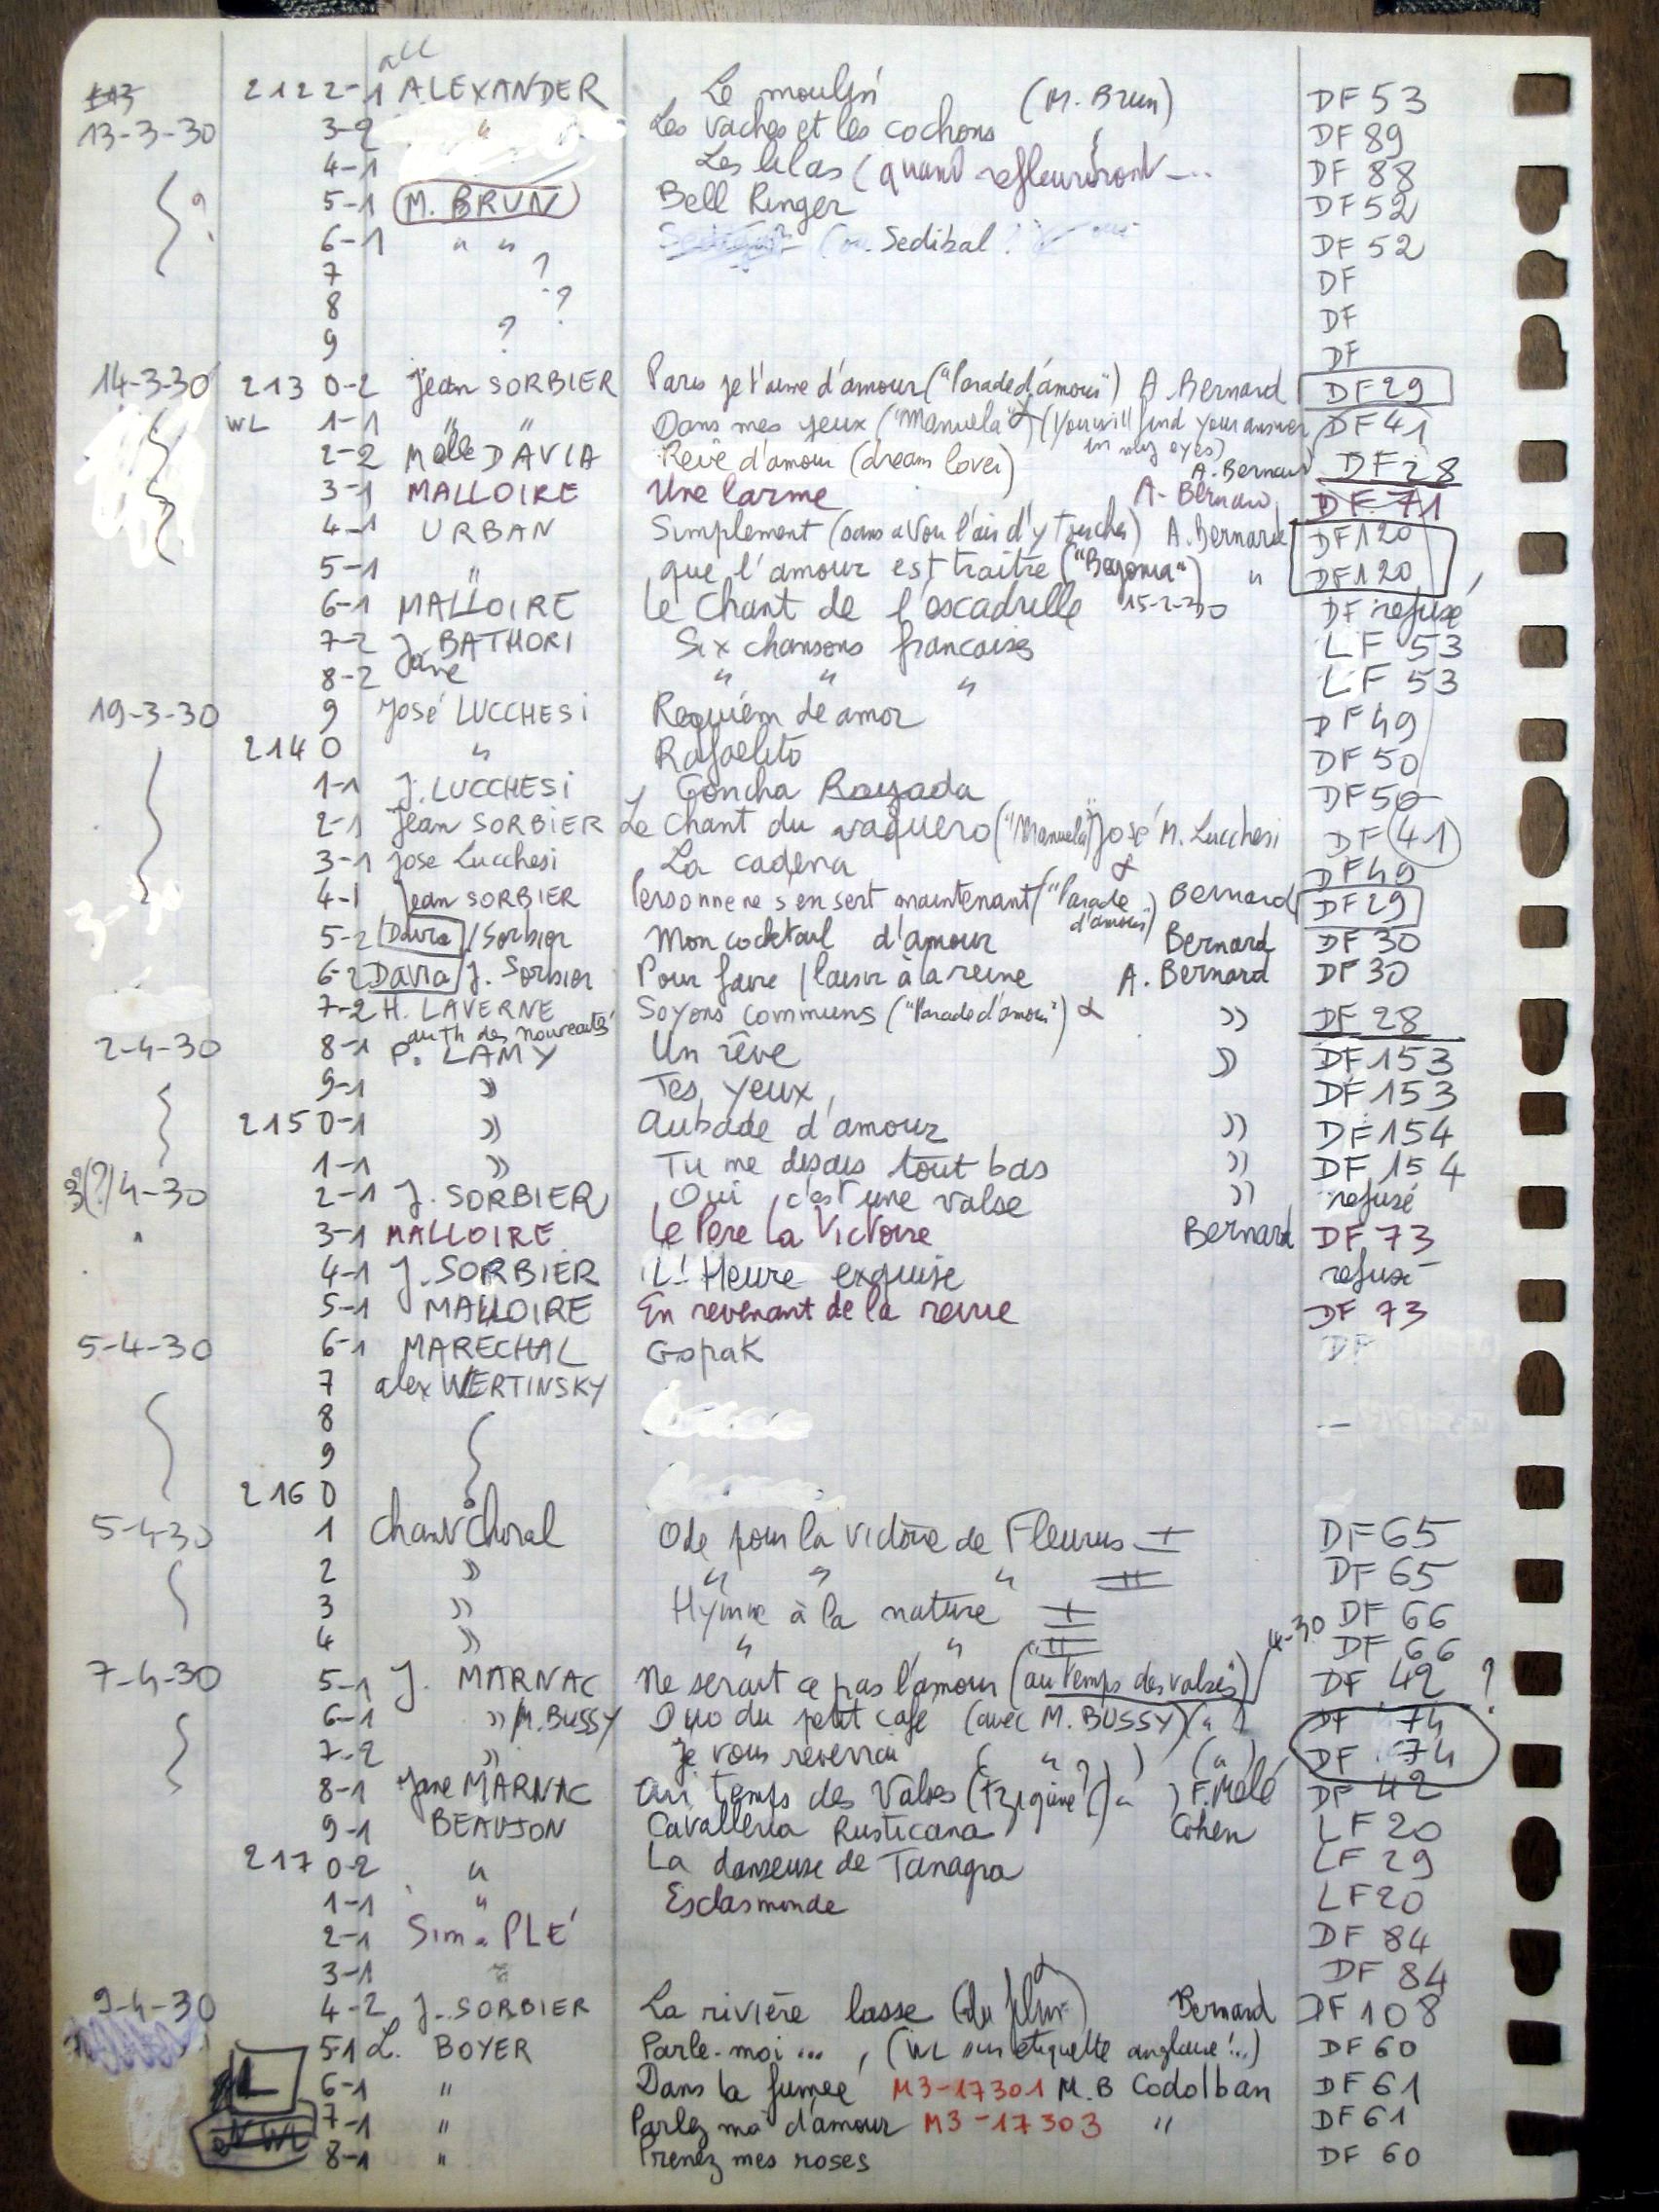 all
2122-1 ALEXANDER Le moulin (M. Brun) DF 53
13-3-30 3-2 " Les vaches et les cochons DF 89
4-1 Les lilas (quand refleuriront ... DF 88
? 5-1 M. BRUN Bell Ringer DF 52
6-1 " " (ou Sedibal ? DF 52
7 ? DF
8 ? DF
9 ? DF
14-3-30 2130-2 Jean SORBIER Paris je t'aime d'amour ("Parade d'amour") A. Bernard DF 29
WL 1-1 " " Dans mes yeux ("Manuela") (You will find your answer in my eyes) DF 41
2-2 Melle DAVIA Rêve d'amour (dream lover) A. Bernard DF 28
3-1 MALLOIRE Une larme A. Bernard DF 71
4-1 URBAN Simplement (sans avoir l'air d'y toucher) A. Bernard DF 120
5-1 " que l'amour est traitre ("Begonia") " DF 120
6-1 MALLOIRE Le Chant de l'escadrille 15-2-30 DF refusé
7-2 J. BATHORI Six chansons francaises LF 53
8-2 Jane " " " LF 53
19-3-30 9 José LUCCHESI Requiem de amor DF 49
2140 " Rafaelito DF 50
1-1 J. LUCCHESI Concha Rayada DF 50
2-1 Jean SORBIER Le chant du vaquero ("Manuela") José M. Lucchesi DF 41
3-1 Jose Lucchesi La cadena DF 49
4-1 Jean SORBIER Personne ne s'en sert maintenant ("Parade d'amour") Bernard DF 29
3-30
5-2 Davia / Sorbier Mon cocktail d'amour Bernard DF 30
6-2 Davia J. Sorbier Pour faire plaisir à la reine A. Bernard DF 30
7-2 H. LAVERNE Soyons communs ("Parade d'amour") " DF 28
du Th des nouveautés
2-4-30 8-1 P. LAMY Un rêve " DF 153
9-1 " Tes yeux DF 153
2150-1 " Aubade d'amour " DF 154
1-1 " Tu me disais tout bas " DF 154
3(?)/4-30 2-1 J. SORBIER Oui, c'est une valse " refusé
" 3-1 MALLOIRE Le Père La Victoire Bernard DF 73
4-1 J. SORBIER L'Heure exquise refusé
5-1 MALLOIRE En revenant de la revue DF 73
5-4-30 6-1 MARECHAL Gopak DF
7 alex WERTINSKY
8
9
2160
5-4-30 1 Chant Choral Ode pour la victoire de Fleurus I DF 65
2 " " " " II DF 65
3 " Hymne à la nature I DF 66
4 " " " II DF 66
7-4-30 5-1 J. MARNAC Ne serait ce pas l'amour (au temps des valses) 4-30 DF 42 ?
6-1 " / M. BUSSY Duo du petit café (avec M. BUSSY) (") DF 74
7-2 " Je vous reverrai ( " ? ) (") DF 74
8-1 Jane MARNAC Au temps des Valses (Tzigane?) (" ) F. Mélé DF 42
9-1 BEAUJON Cavalleria Rusticana Cohen LF 20
2170-2 " La danseuse de Tanagra LF 29
1-1 " Esclasmonde LF 20
2-1 Sim. PLÉ DF 84
3-1 " DF 84
9-4-30 4-2 J. SORBIER La rivière lasse (du film) Bernard DF 108
5-1 L. BOYER Parle-moi ..., (WL sur étiquette anglaise !..) DF 60
6-1 " Dans la fumée M3-17301 M.B Codolban DF 61
7-1 " Parlez moi d'amour M3-17303 " DF 61
WL 8-1 " Prenez mes roses DF 60